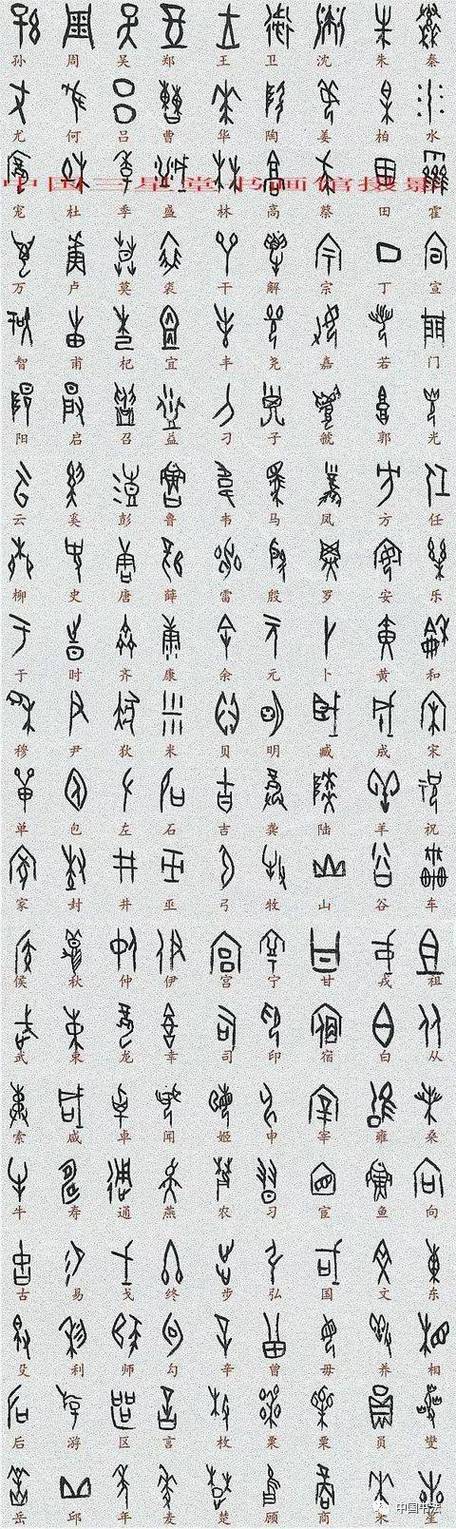 孙 周 吴 郑 王 卫 沈 朱 秦
尤 何 吕 曹 华 陶 姜 柏 水
中国三星堂书画馆摄影
宠 杜 季 盛 林 高 蔡 田 霍
万 卢 莫 裘 干 解 宗 丁 宣
智 甫 杞 宜 丰 尧 嘉 若 门
阳 启 召 益 刁 子 虢 郭 光
云 奚 彭 鲁 韦 马 凤 方 任
柳 史 唐 薛 雷 殷 罗 安 乐
于 时 齐 康 余 元 卜 黄 和
穆 尹 狄 米 贝 明 臧 成 宋
单 包 左 石 吉 龚 陆 羊 祝
家 封 井 巫 弓 牧 山 谷 车
侯 秋 仲 伊 宫 宁 甘 戎 祖
武 束 龙 幸 司 印 宿 白 从
索 咸 卓 闻 姬 申 宰 雍 桑
牛 寿 通 燕 农 习 宦 鱼 向
古 易 戈 终 步 弘 国 文 东
殳 利 师 勾 辛 曾 毋 养 相
后 游 区 言 枚 粟 栗 员 燮
岳 邱 年 麦 楚 顾 商 星
中国书法